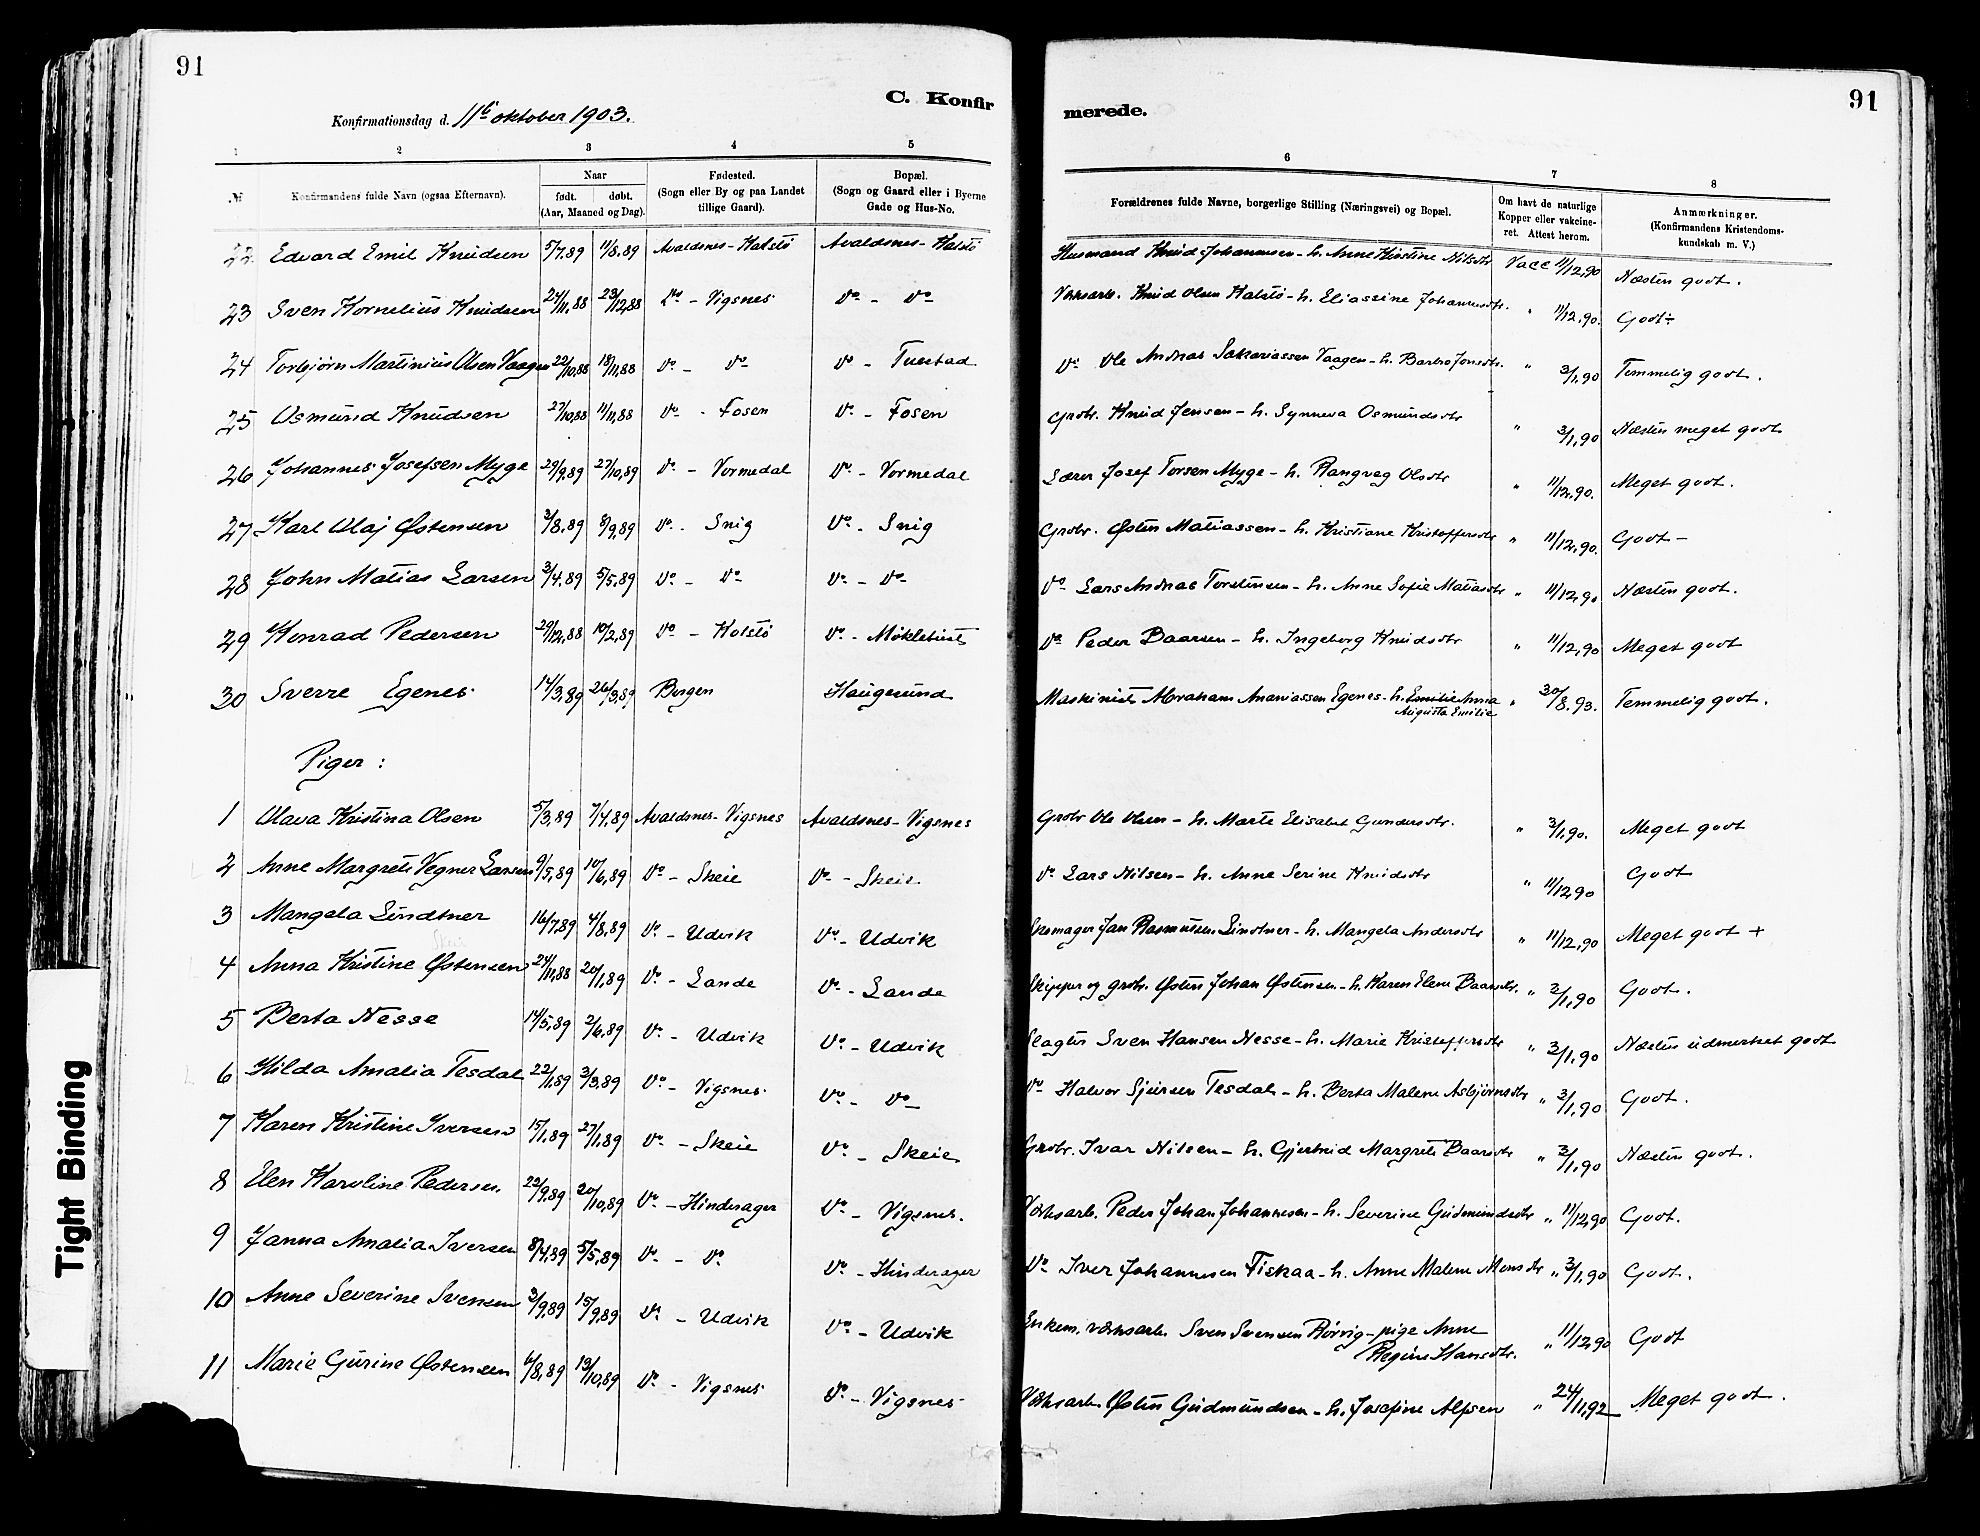 91
C. Konfir
merede.
91
Konfirmationsdag d. 11te oktober 1903.
1 2 3 4 5 6 7 8
№ Konfirmandens fulde Navn (ogsaa Efternavn). Naar født. døbt. (Aar, Maaned og Dag). Fødested. (Sogn eller By og paa Landet tillige Gaard). Bopæl. (Sogn og Gaard eller i Byerne Gade og Hus-No. Forældrenes fulde Navne, borgerlige Stilling (Næringsvei) og Bopæl. Om havt de naturlige Kopper eller vakcineret. Attest herom. Anmærkninger. (Konfirmandens Kristendomskundskab m. V.)
22 Edvard Emil Knudsen 5/7.89 11/8.89 Avaldsnes - Kalstø Avaldsnes - Kalstø Husmand Knud Johannesen - h. Anne Kirstine Nilsdtr Vacc 11/12,90 Næsten godt.
23 Sven Kornelius Knudsen 24/11.88 23/12,88 Do - Vigsnes Do - Do Verksarb. Knud Olsen Kalstø - h. Eliassine Johannesdtr. " 11/12.90. Godt÷
24 Torbjørn Martinius Olsen Vaagen 22/10.88 18/11.88 Do - Do Do - Tuestad Do Ole Andreas Sakariassen Vaagen - h. Barbro Jonsdtr. " 3/1,90 Temmelig godt.
25 Osmund Knudsen 27/10.88 11/11.88 Do - Fosen Do - Fosen Grdbr. Knud Jensen - h. Synneva Osmundsdtr " 3/1,90 Næsten meget godt
26 Johannes Josefsen Myge 29/9.89 27/10,89 Do - Vormedal Do - Vormedal Lærer Josef Torsen Myge - h. Rangvag Olsdtr " 11/12,90. Meget godt.
27 Karl Olaj Østensen 3/8.89 8/9.89 Do - Snig Do - Snig Grdbr. Østen Matiassen - h. Kristiane Kristoffersdtr " 11/12,90. Godt -
28 John Matias Larsen 3/4.89 5/5.89 Do - Do Do - Do Do Lars Andreas Torstensen - h. Anne Sofie Matiasdtr " 11/12,90 Næsten godt.
29 Konrad Pedersen 29/12,88 10/2,89 Do - Kolstø Do - Møklebust Do Peder Baarsen - h. Ingeborg Knudsdtr " 11/12,90 Meget godt
30 Sverre Egenes 14/3,89 26/3,89 Bergen Haugesund Maskinist Abraham Ananiassen Egenes - h. Emilie Anna " 30/8.93. Temmelig godt.
Augusta Emilie
Piger:
1 Olava Kristina Olsen 5/3,89 7/4,89 Avaldsnes - Vigsnes Avaldsnes - Vigsnes Grdbr Ole Olsen - h. Marte Elisabet Gundersdtr. " 3/1,90. Meget godt
2 Anne Margrete Vegner Larsen 9/5,89 10/6,89 Do - Skeie Do - Skeie Do Lars Nilsen - h. Anne Serine Knudsdtr " 11/12,90 Godt
3 Mangela Lindtner 16/7,89 4/8,89 Do - Udvik Do - Udvik Skomager Jan Rasmussen Lindtner - h. Mangela Andersdtr " 11/12,90 Meget godt +
Skeie
4 Anna Kristine Østensen 24/11.88 20/1,89 Do - Lande Do - Lande Skipper og grdbr. Østen Johan Østensen - h. Karen Elene Baarsdtr. " 3/1,90 Godt.
5 Berta Nesse 14/5.89 2/6,89 Do - Udvik Do - Udvik Slagter Sven Hansen Nesse - h. Marie Kristoffersdtr " 3/1,90 Næsten udmerket godt
6 Hilda Amalia Tesdal 22/1,89 3/3.89 Do - Vigsnes Do - Do Do Halvor Sjursen Tesdal - h. Berta Malene Asbjørnsdtr " 3/1,90 Godt.
7 Karen Kristine Iversen 15/1.89 27/1.89 Do - Skeie Do - Skeie Grdbr. Ivar Nilsen - h. Gjertrud Margrete Baarsdtr " 3/1,90 Næsten godt.
8 Elen Karoline Pedersen 22/9.89 20/10,89 Do - Hinderager Do - Vigsnes. Verksarb. Peder Johan Johannesen - h. Severine Gudmundsdtr " 11/12,90 Godt.
9 Janna Amalia Iversen 8/4,89 5/5,89 Do - Do Do - Hinderager Do Iver Johannesen Fiskaa - h. Anne Malene Monsdtr " 3/1,90 Godt.
10 Anne Severine Svensen 3/9,89 15/9,89 Do - Udvik Do - Udvik Enkem. verksarb. Sven Svensen Rørvig - pige Anne " 11/12,90 Godt
Regine Hansdtr.
11 Marie Gurine Østensen 6/8,89 13/10,89 Do - Vigsnes Do - Vigsnes Verksarb. Østen Gudmundsen - h. Josefine Alfsen " 24/11,92 Meget godt.
Tight Binding